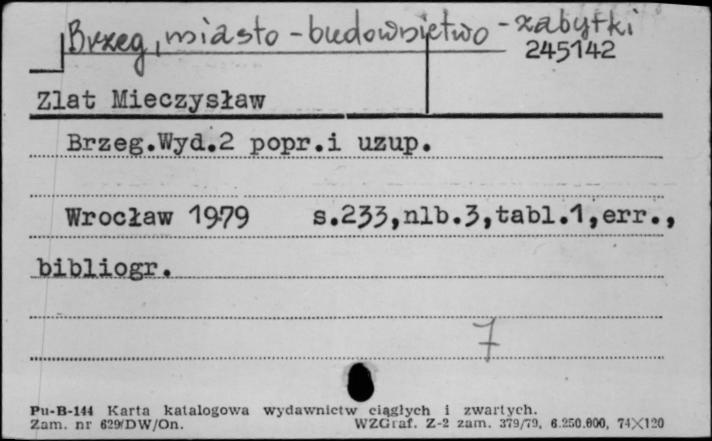 Brzeg, miasto - budownictwo - zabytki
245142
Zlat Mieczysław
Brzeg.Wyd.2 popr.i uzup.
Wrocław 1979 s.233,nlb.3,tabl.1,err.,
bibliogr.
7
Pu-B-144 Karta katalogowa wydawnictw ciągłych i zwartych.
Zam. nr 629/DW/On. WZGraf. Z-2 zam. 379/79, 6.250.000, 74X120